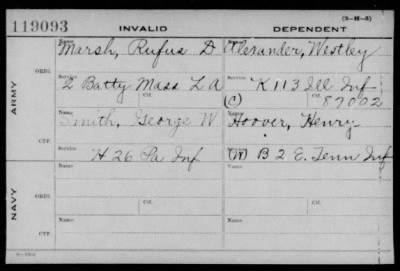 (3-H-5)
119093 INVALID DEPENDENT
ARMY
ORIG.
Name Marsh, Rufus D Alexander, Westley
Service 2 Batty Mass L A K 113 Ill Inf
Ctf. (C) 87002
CTF.
Name Smith, George W Hoover, Henry
Service H 26 Pa Inf (W) B 2 E. Tenn Inf
NAVY
ORIG.
Name Name
Service Ctf. Service Ctf.
CTF.
Name Name